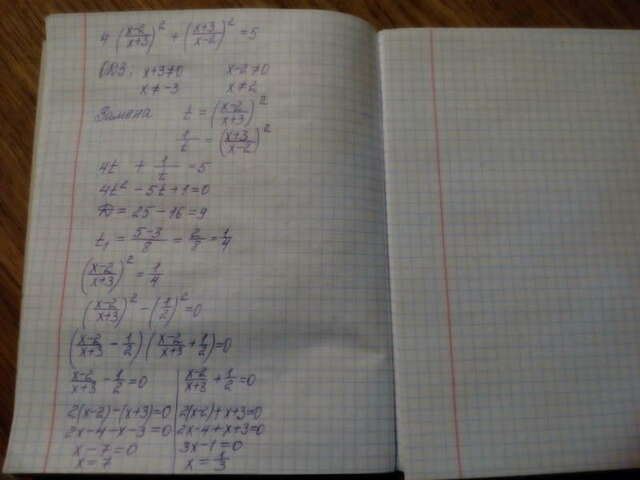 4 (x-2/x+3)² + (x+3/x-2)² = 5
ОДЗ: x+3≠0 x-2≠0
x≠-3 x≠2
Замена t = (x-2/x+3)²
1/t = (x+3/x-2)²
4t + 1/t = 5
4t² - 5t + 1 = 0
D = 25 - 16 = 9
t₁ = 5-3/8 = 2/8 = 1/4
(x-2/x+3)² = 1/4
(x-2/x+3)² - (1/2)² = 0
(x-2/x+3 - 1/2) (x-2/x+3 + 1/2) = 0
x-2/x+3 - 1/2 = 0 x-2/x+3 + 1/2 = 0
2(x-2)-(x+3)=0 2(x-2)+x+3=0
2x-4-x-3=0 2x-4+x+3=0
x-7=0 3x-1=0
x=7 x=1/3